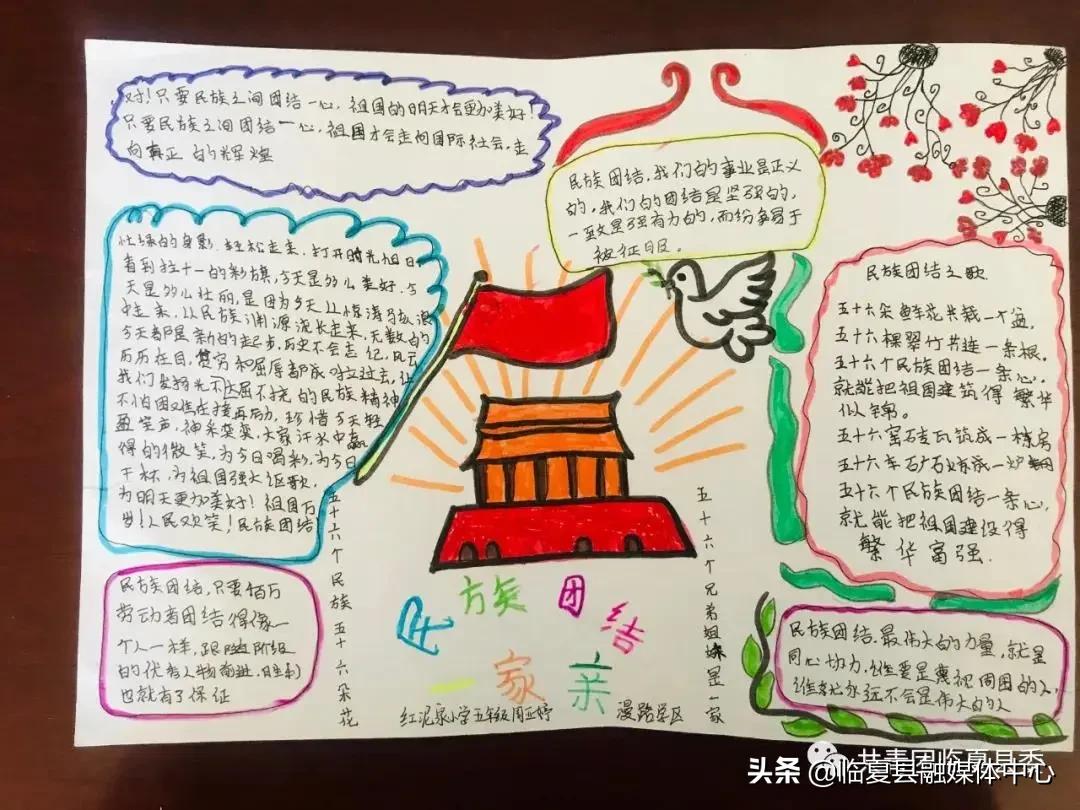 对！只要民族之间团结一心，祖国的明天才会更加美好！
只要民族之间团结一心，祖国才会走向国际社会，走
向真正的辉煌
民族团结，我们的事业是正义
的，我们的团结是坚强的，
一致是强有力的，而纷争易于
被征服。
忙绿的身影，轻松走来，打开时光旧日
看到拉十一的彩旗，今天是多么美好，今
天是多么壮丽，是因为今天从惊涛马骇浪
中走来，从民族渊源流长走来，无数的
今天都是新的起步，历史不会忘记，风云
历历在目，贫穷和屈辱都成
我们发扬光不达屈不挠的民族精神
不怕困难在接再历，珍惜今天轻
盈笑声，神采奕奕，大家汗水中赢
得的微笑，为今日喝彩，为今日
干杯，为祖国强大讴歌，
为明天更加美好！祖国万
岁！人民欢笑！民族团结
民族团结之歌
五十六朵鲜花共栽一个盆，
五十六棵翠竹共连一条根。
五十六个民族团结一条心，
就能把祖国建筑得繁华
似锦。
五十六窑砖瓦筑成一栋房
五十六车矿石炼成一炉钢
五十六个民族团结一条心，
就能把祖国建设得
繁华富强.
民族团结，只要佰万
劳动者团结得像一
个人一样，跟随阶级
的优秀人物前进，胜利
也就有了保证
五十六个民族五十六朵花
五十六个兄弟姐妹是一家
民族团结
一家亲
红泥泉小学五年级周亚婷
漫路学区
民族团结.最伟大的力量，就是
同心协力，谁要是漠视周围的人
谁就永远不会是伟大的人
共青团临夏县委
头条 @临夏县融媒体中心